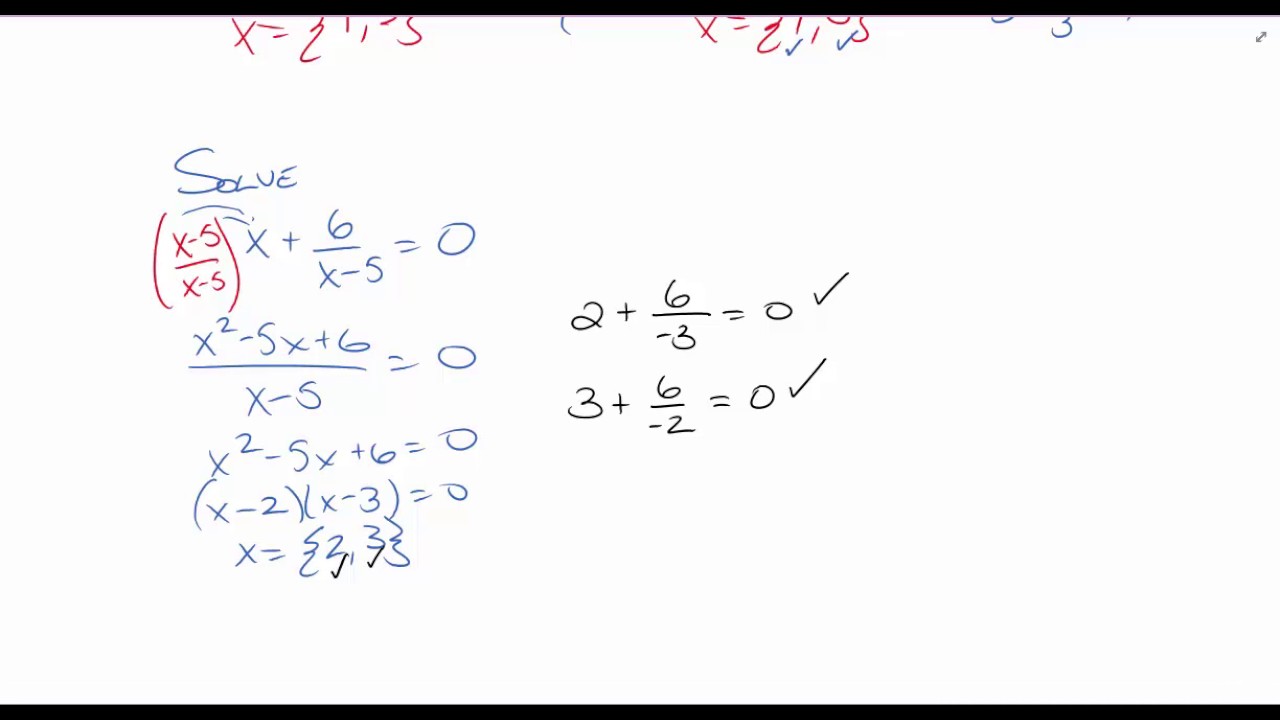 SOLVE
(x-5/x-5) x + 6/x-5 = 0
x²-5x+6/x-5 = 0
x²-5x+6=0
(x-2)(x-3)=0
x={2,3}
2+6/-3=0✓
3+6/-2=0✓